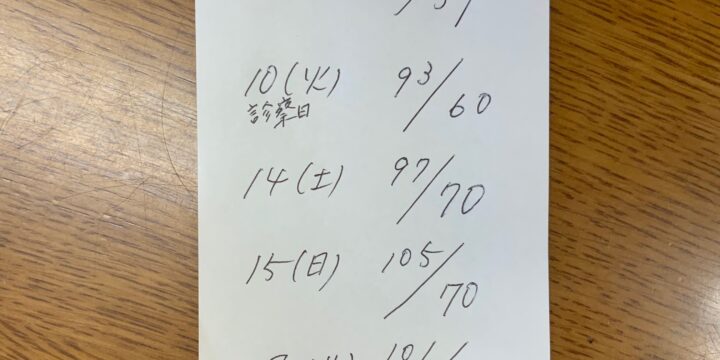 10(火) 93/60
診察日
14(土) 97/70
15(日) 105/70